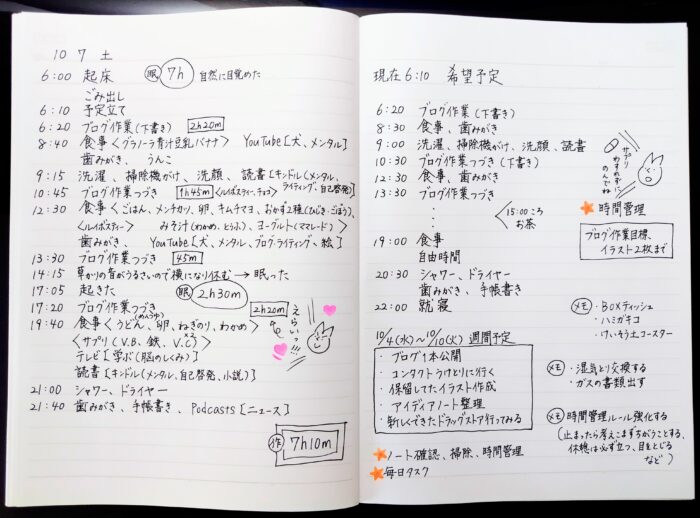 10 7 土
6:00 起床 眠 7h 自然に目覚めた
ごみ出し
6:10 予定立て
6:20 ブログ作業(下書き) 2h20m
8:40 食事<グラノーラ青汁豆乳バナナ> YouTube[犬、メンタル]
歯みがき、うんこ
9:15 洗濯、掃除機がけ、洗顔、読書[キンドル(メンタル、
ライティング、自己啓発)]
10:45 ブログ作業つづき 1h45m <ルイボスティー、チョコ>
12:30 食事<ごはん、メンチカツ、卵、キムチマヨ、おかず2種(ひじき・ごぼう)、
<ルイボスティー> みそ汁(わかめ、とうふ)、ヨーグルト(ママレード)>
歯みがき、YouTube[犬、メンタル、ブログ・ライティング、絵]
13:30 ブログ作業つづき 45m
14:15 草かりの音がうるさいので横になり休む → 眠った
17:05 起きた 眠 2h30m
17:20 ブログ作業つづき 2h20m
19:40 食事<うどん、卵、ねぎのり、わかめ>
<サプリ(V.B、鉄、V.C)> ×2
テレビ[学ぶ(脳のしくみ)]
読書[キンドル(メンタル、自己啓発、小説)]
えらいっ!!!
21:00 シャワー、ドライヤー
21:40 歯みがき、手帳書き、Podcasts[ニュース]
作 7h10m
現在6:10 希望予定
6:20 ブログ作業(下書き)
8:30 食事、歯みがき
9:00 洗濯、掃除機がけ、洗顔、読書
10:30 ブログ作業つづき(下書き)
12:30 食事、歯みがき
13:30 ブログ作業つづき
15:00ころ
お茶
19:00 食事
自由時間
20:30 シャワー、ドライヤー
歯みがき、手帳書き
22:00 就寝
サプリ
わすれずに
のんでね
時間管理
ブログ作業目標、
イラスト2枚まで
メモ ・BOXティッシュ
・ハミガキコ
・けいそう土コースター
10/4(水)〜10/10(火) 週間予定
・ブログ1本公開
・コンタクトうけとりに行く
・保留してたイラスト作成
・アイディアノート整理
・新しくできたドラッグストア行ってみる
メモ ・湿気とり交換する
・ガスの書類出す
メモ 時間管理ルール強化する
(止まったら考えこまずちがうことする、
休憩は必ず立つ、目をとじる
など)
ノート確認、掃除、時間管理
毎日タスク